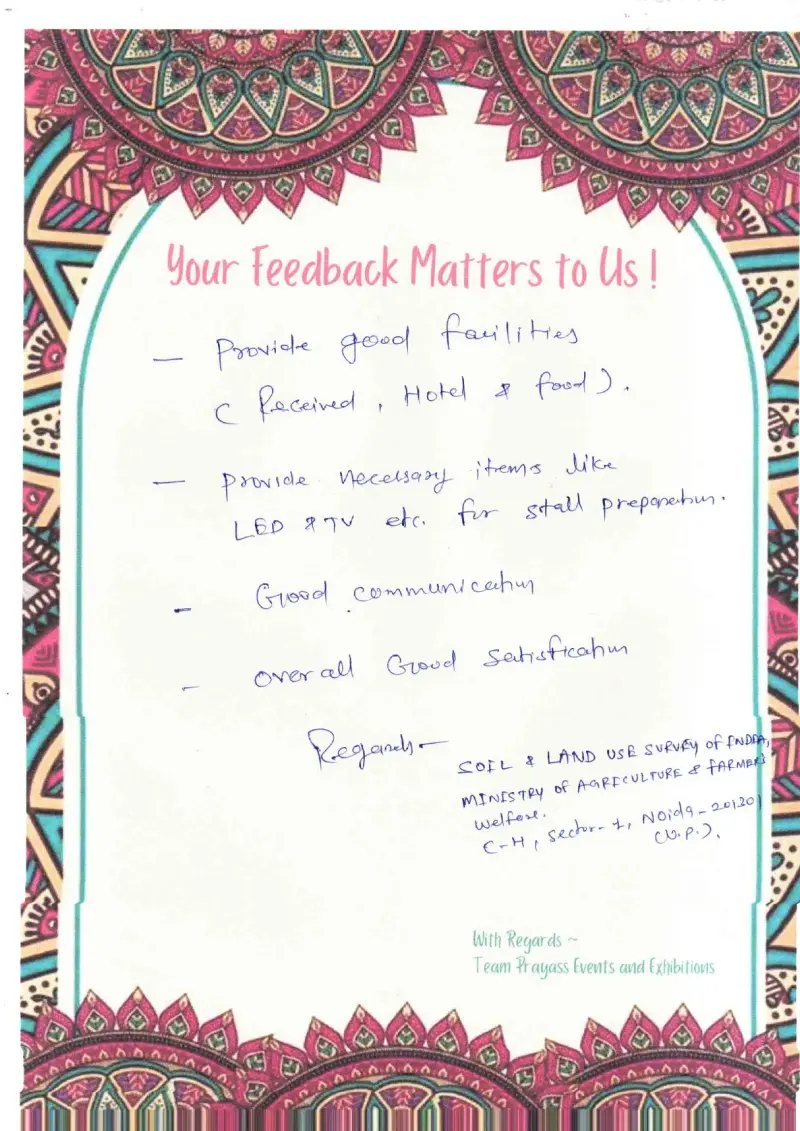 Your Feedback Matters to Us !
— Provide good facilities
( Received , Hotel & food ) .
— Provide necessary items like
LED & TV etc. for stall preparation.
- Good communication
- over all Good Satisfication
Regards —
SOIL & LAND USE SURVEY of INDIA,
MINISTRY of AGRICULTURE & FARMERS
Welfare.
C-H , sector- 1, Noida - 201301
(U.P.).
With Regards ~
Team Prayass Events and Exhibitions